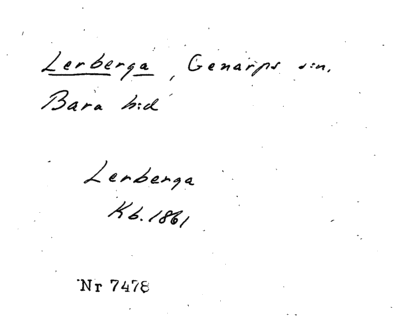 Lerberga, Genarps sn.
Bara hd
Lerberga
Kb. 1861
Nr 7478